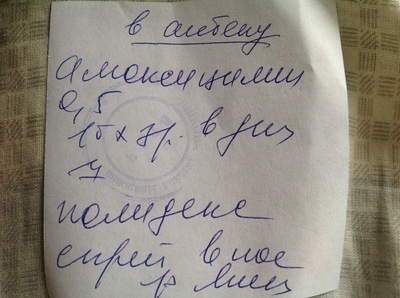 в аптеку
Амоксициллин
0,5
1т х 3р. в день
7
полидекс
спрей в нос